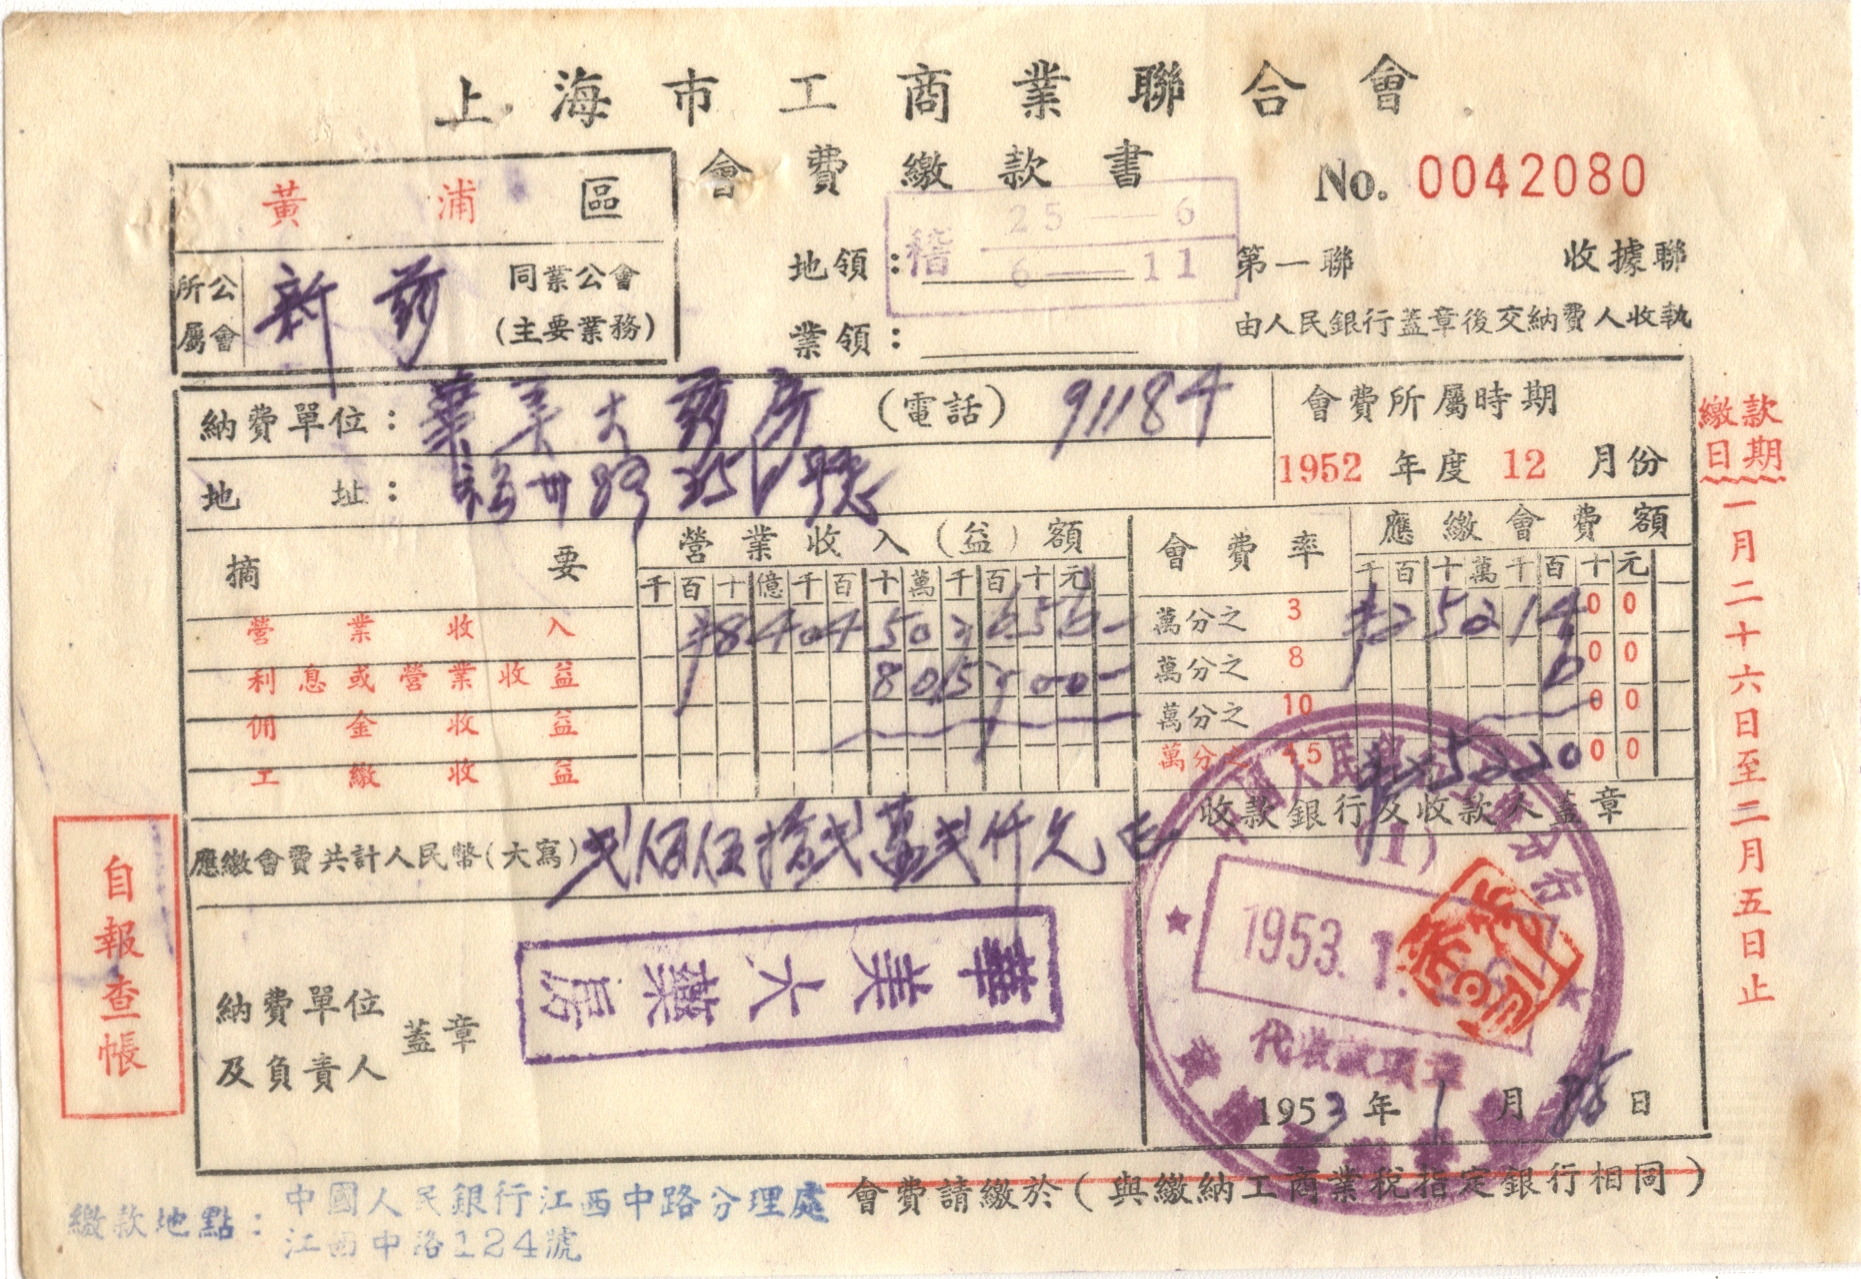 上海市工商業聯合會
會費繳款書
No. 0042080
黃浦區
所屬公會 新药 同業公會
(主要業務)
地領：
稽 25—6
6—11
業領：
第一聯 收據聯
由人民銀行蓋章後交納費人收執
納費單位：華美大药房 (電話) 91184
會費所屬時期
1952 年度 12 月份
地址：福州路 號
摘要 營業收入(益)額 會費率 應繳會費額
千百十億千百十萬千百十元 千百十萬千百十元
營業收入 萬分之 3 00
利息或營業收益 萬分之 8 00
佣金收益 萬分之 10 00
工繳收益 萬分之 4.5 00
收款銀行及收款人蓋章
應繳會費共計人民幣(大寫) 弍佰伍拾弍萬弍仟元正
納費單位及負責人 蓋章
華美大藥房
(1)
1953.1.
代收款項章
1953 年 1 月 25 日
會費請繳於(與繳納工商業稅指定銀行相同)
繳款地點：中國人民銀行江西中路分理處
江西中路124號
自報查帳
繳款日期
一月二十六日至二月五日止